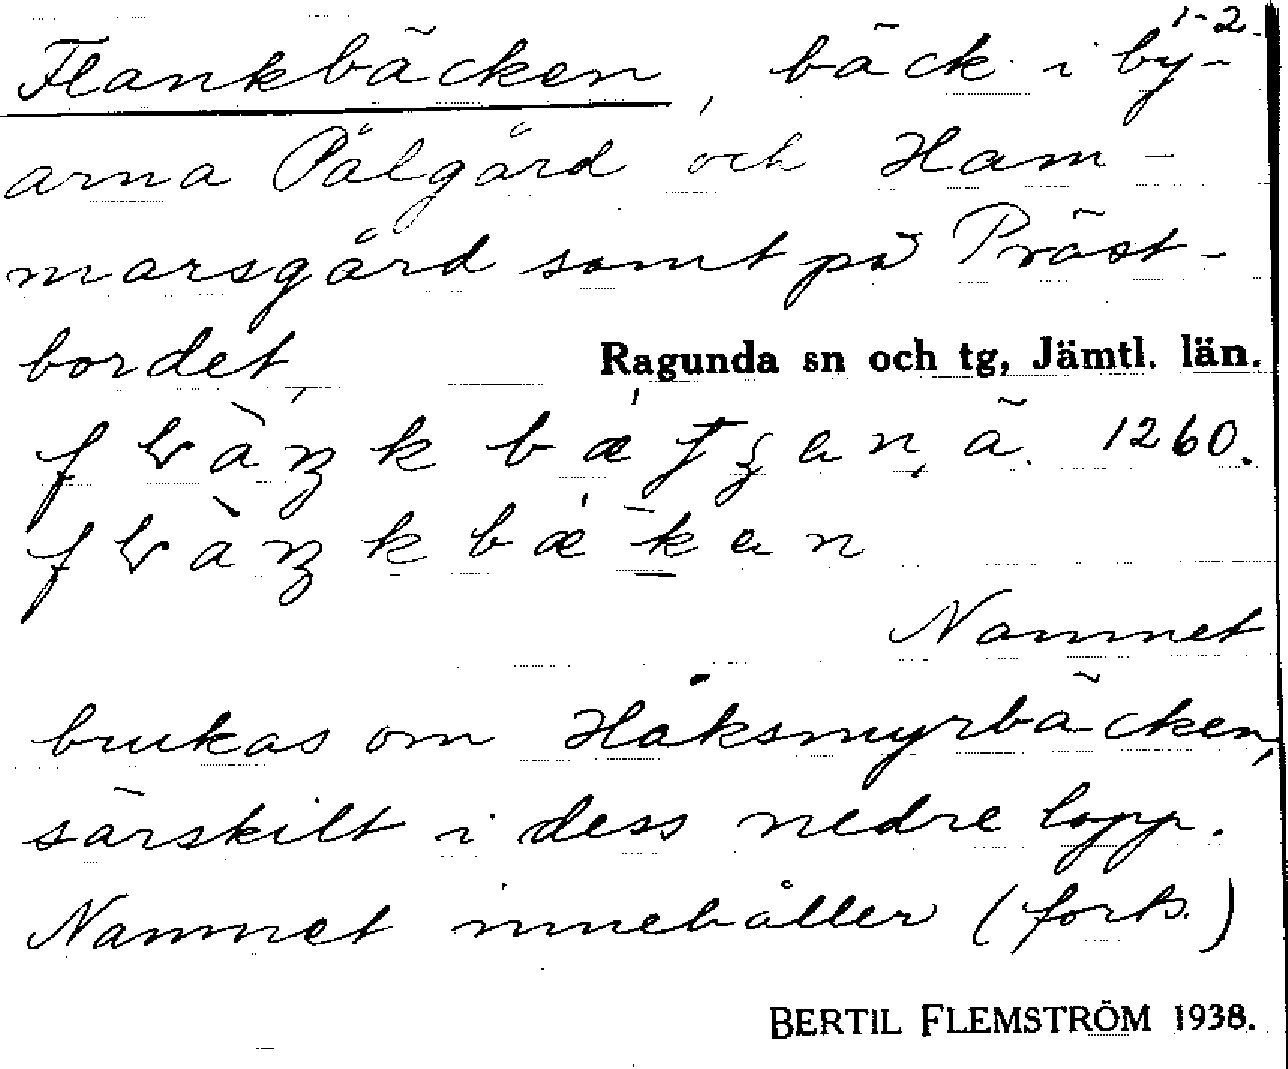 1-2.
Flankbäcken, bäck i by-
arna Pålgård och Ham-
marsgård samt på Präst-
bordet,
Ragunda sn och tg, Jämtl. län.
1260.
Namnet
brukas om Håksmyrbäcken,
särskilt i dess nedre lopp.
Namnet innehåller (forts.)
BERTIL FLEMSTRÖM 1938.